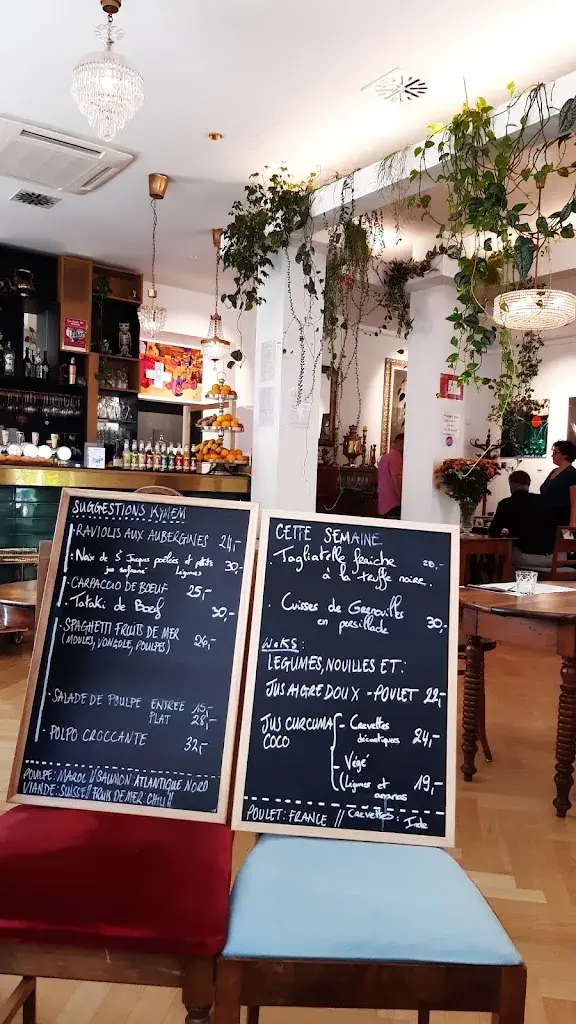 SUGGESTIONS KYTEM
· RAVIOLIS AUX AUBERGINES 24,-
· Noix de St Jacques poêlées et petits
jus safrané légumes 30,-
· CARPACCIO DE BOEUF 25,-
· Tataki de Boeuf 30,-
· SPAGHETTI FRUITS DE MER 26,-
(MOULES, VONGOLE, POULPES)
· SALADE DE POULPE ENTREE 15,-
PLAT 28,-
· POLPO CROCCANTE 32,-
POULPE: MAROC // SAUMON: ATLANTIQUE NORD
VIANDE: SUISSE // FRUITS DE MER: CHILI //
CETTE SEMAINE
· Tagliatelle fraiche 28,-
à la truffe noire.
· Cuisses de Grenouilles
en persillade 30,-
WOKS:
LEGUMES, NOUILLES ET:
JUS AIGRE DOUX - POULET 22,-
JUS CURCUMA - Crevettes
COCO décortiquées 24,-
- Végé
(Légumes et 19,-
ananas
POULET: FRANCE // Crevettes: Inde